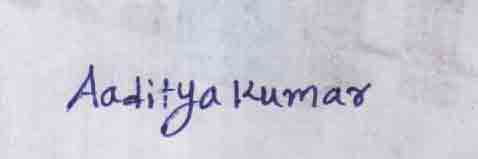 Aaditya Kumar